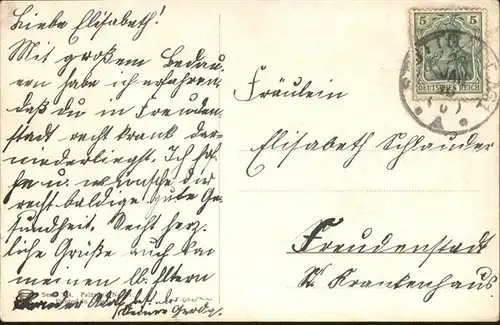 Liebe Elisabeth!
Mit großem Bedau-
ern habe ich erfahren,
daß du in Freuden-
stadt recht krank dar-
niederliegst. Ich hof-
fe u. wünsche dir
recht baldige gute Ge-
sundheit. Recht herz-
liche Grüße auch von
meinen lb. Eltern
Adolf
5
DEUTSCHES REICH
Fräulein
Elisabeth Schlauder
Freudenstadt
Krankenhaus